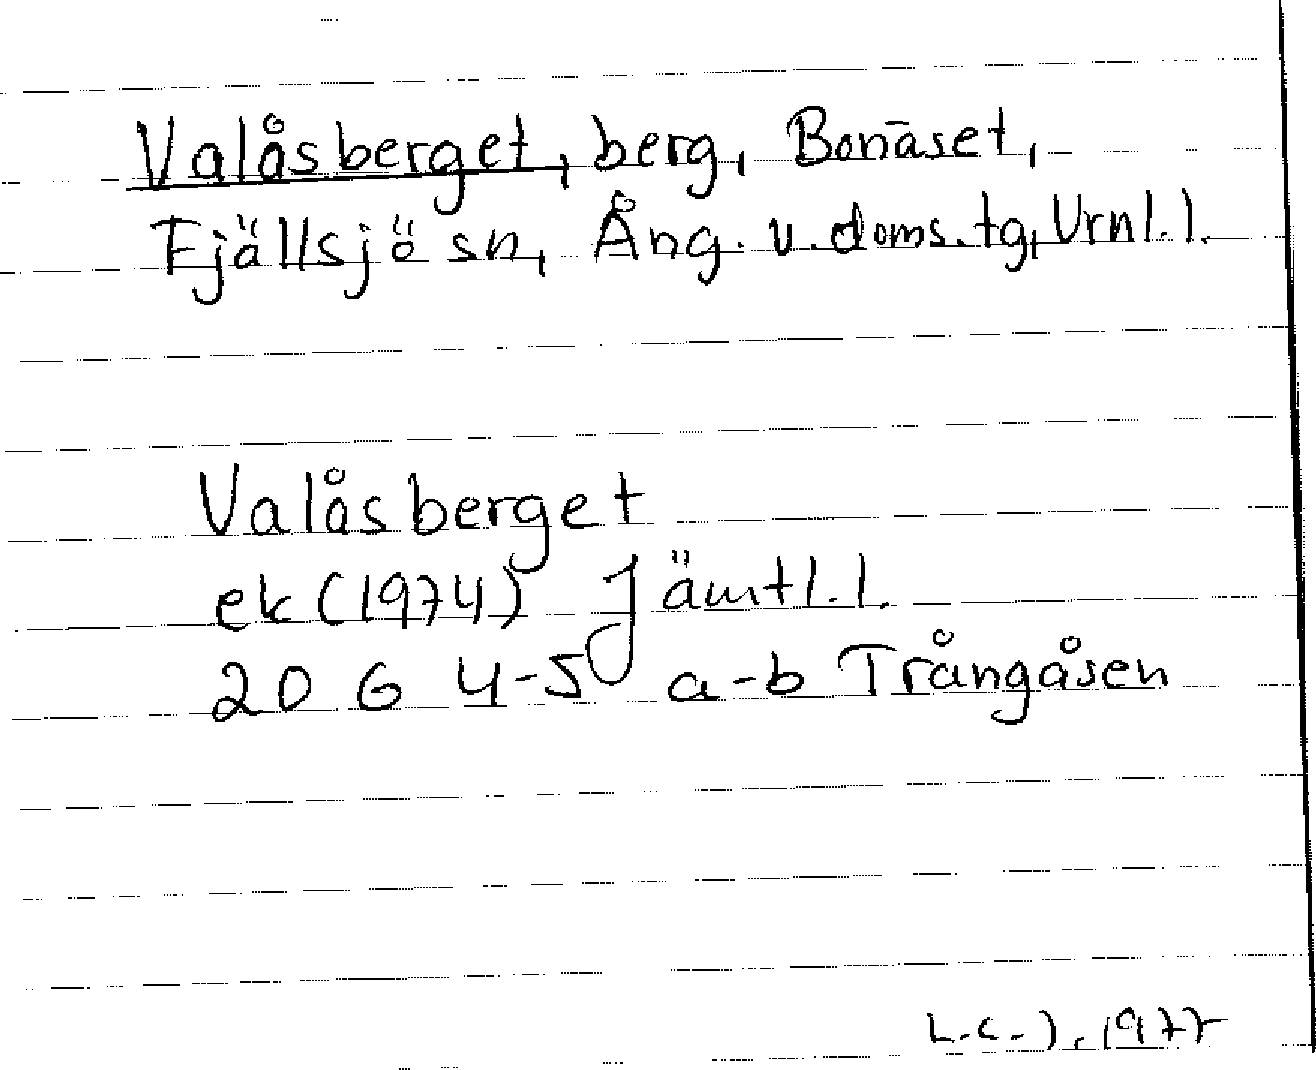 Valåsberget, berg, Bonäset,
Fjällsjö sn, Ång. v. doms. tg, Vrnl.l.
Valåsberget
ek (1974) Jämtl.l.
20 G 4-5 a-b Trångåsen
L.C.J. 1977